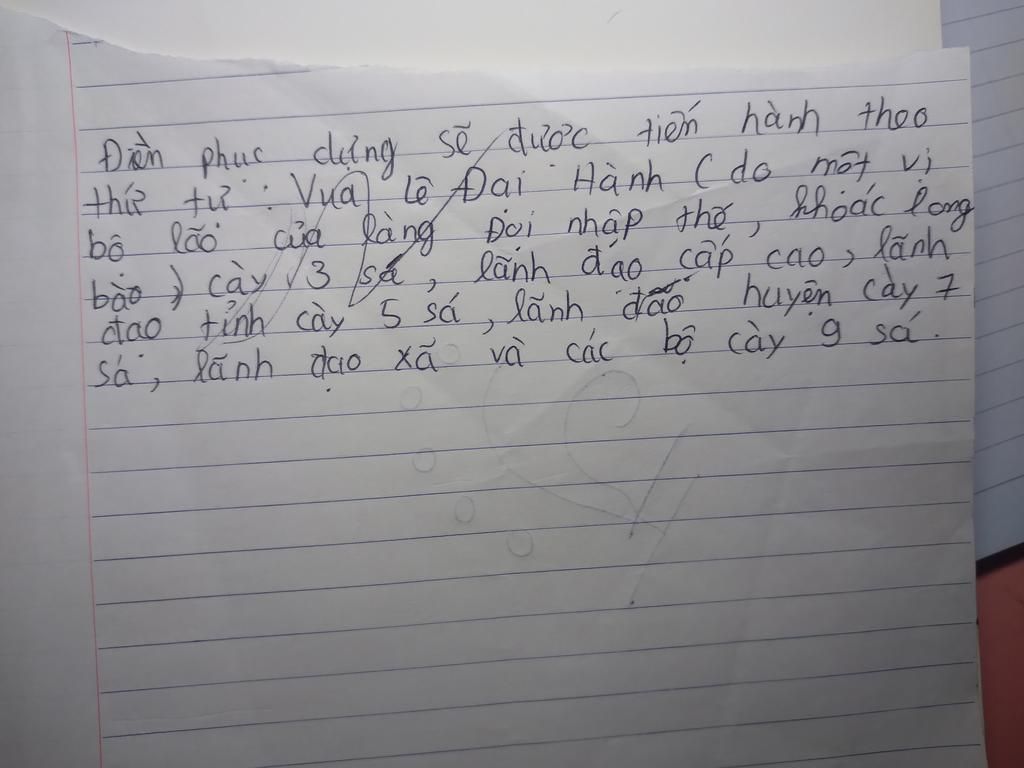 Điền phục dựng sẽ được tiến hành theo
thứ tự : Vua Lê Đại Hành ( do một vị
bô lão của làng Đọi nhập thế, khoác long
bào ) cày 3 sá, lãnh đạo cấp cao, lãnh
đạo tỉnh cày 5 sá, lãnh đảo huyện cày 7
sá, lãnh đạo xã và các bộ cày 9 sá.